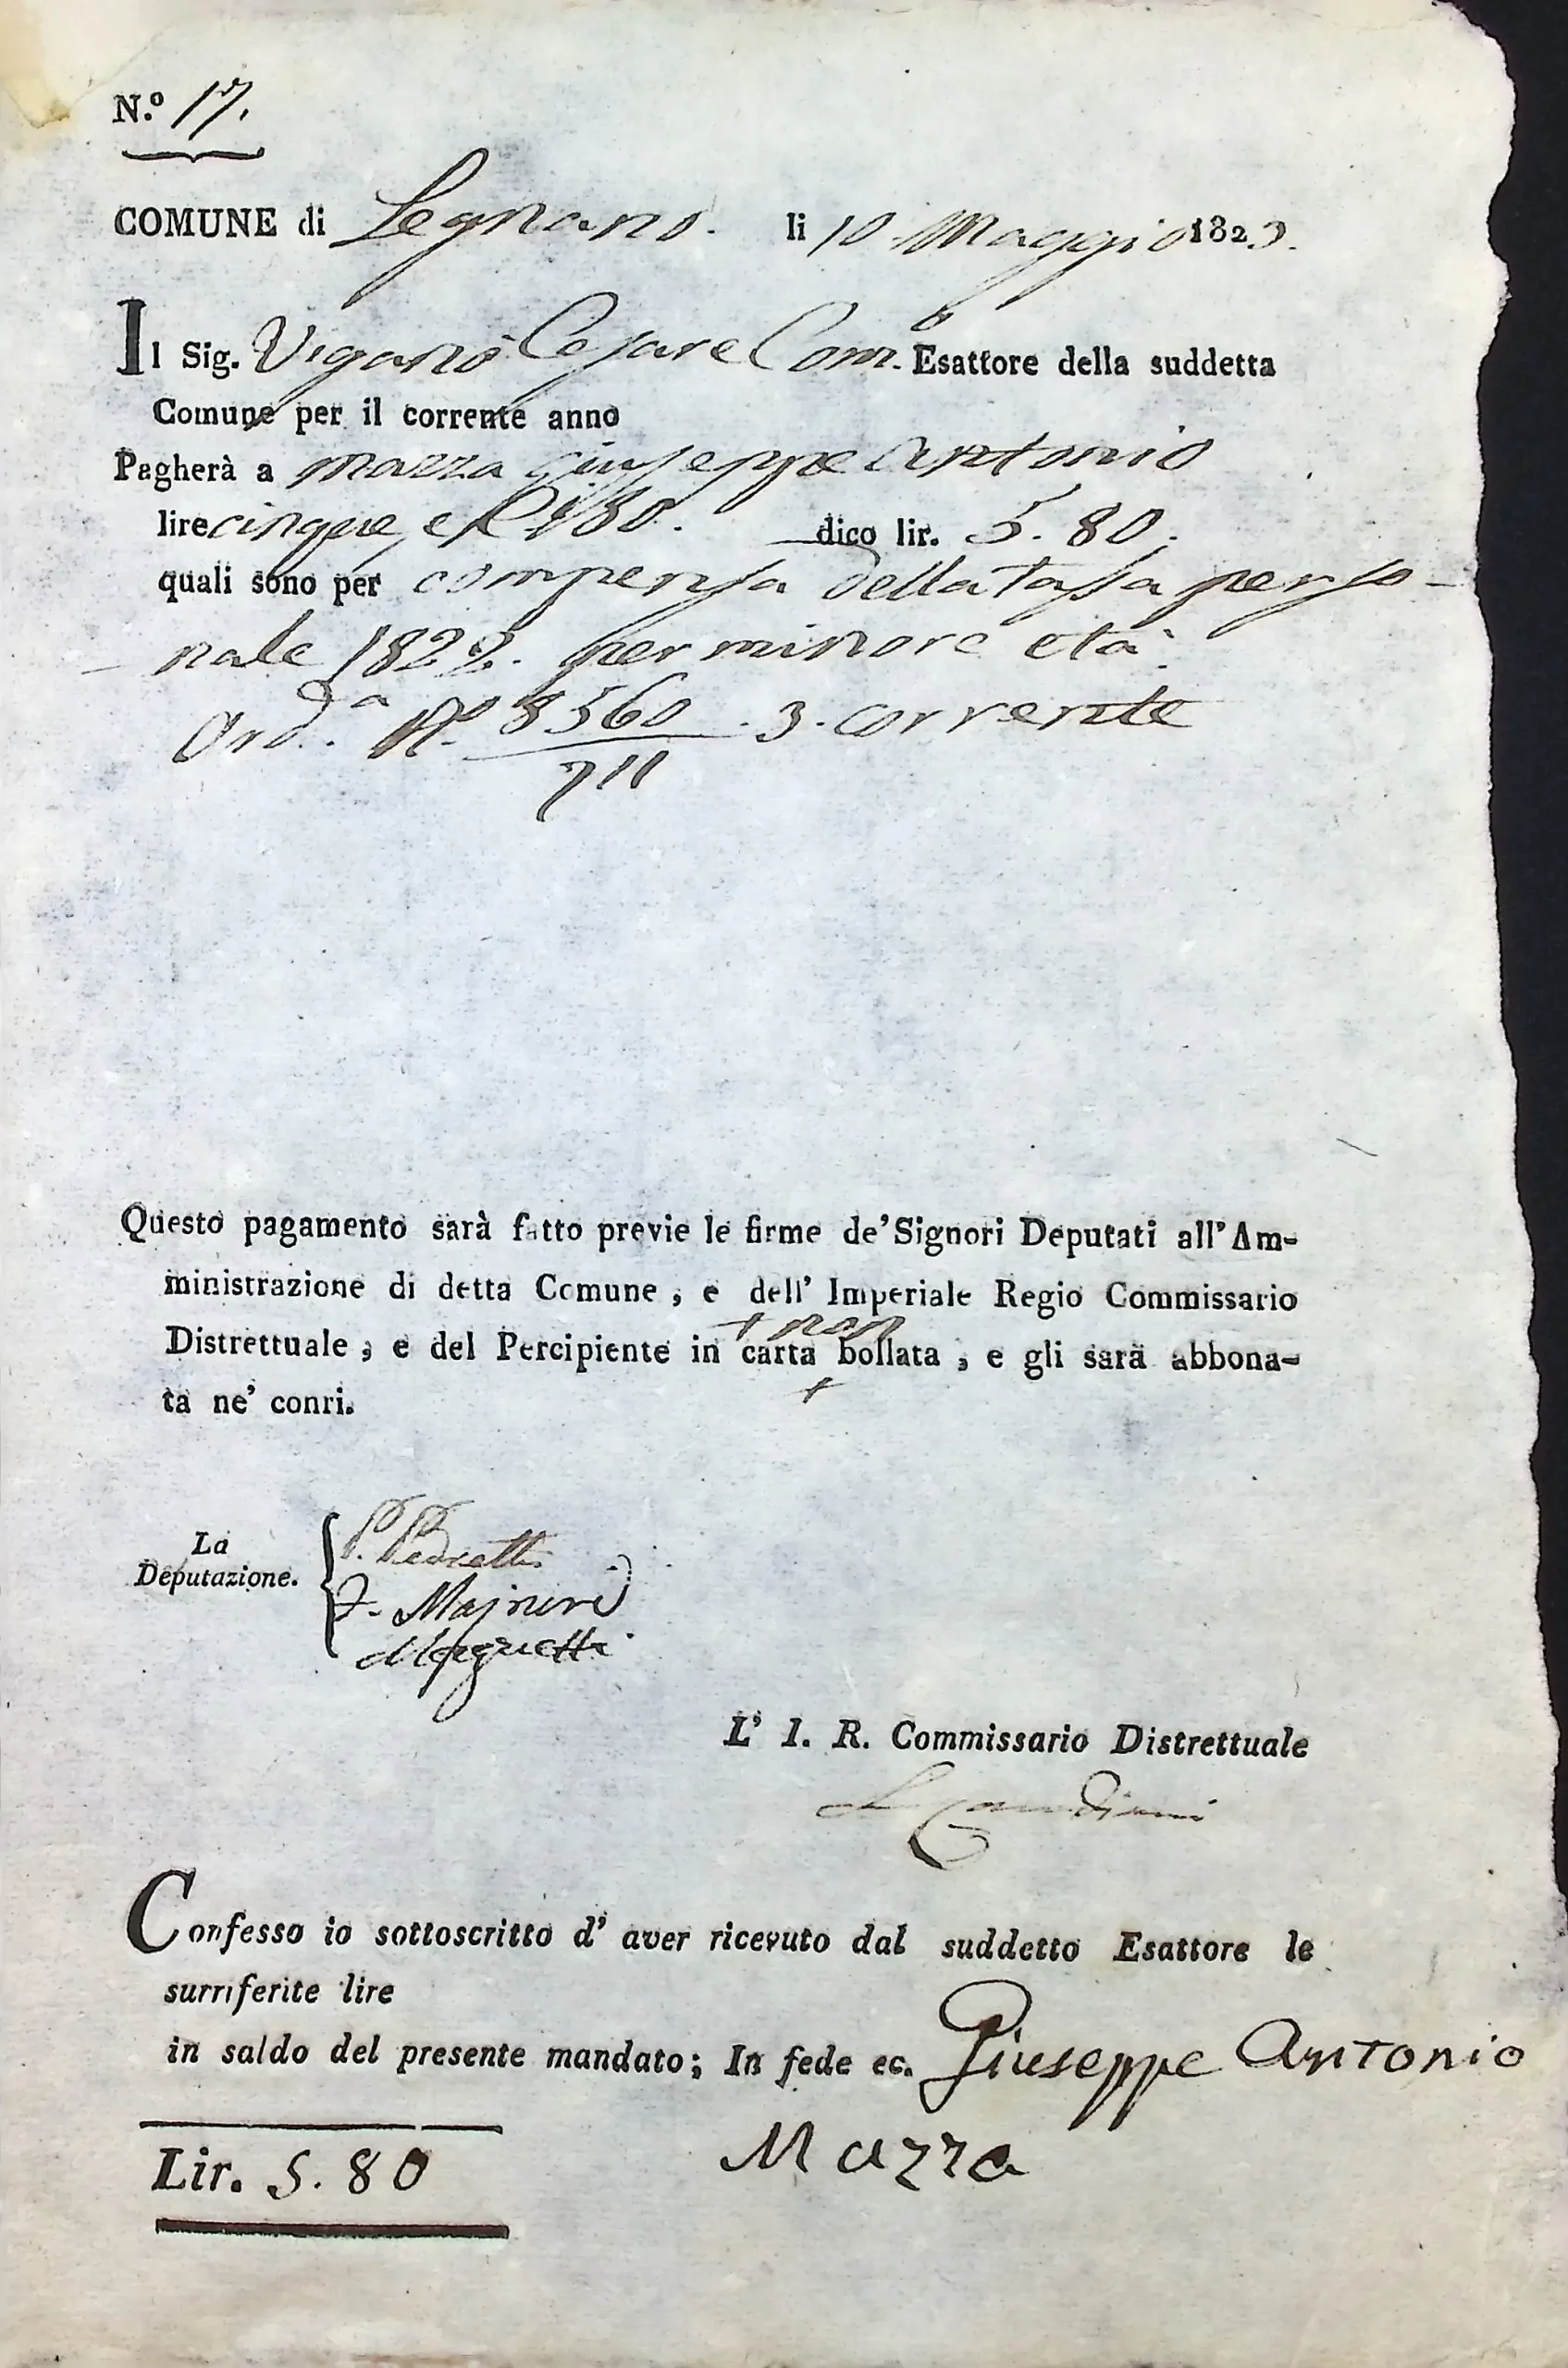 N.º 17.
COMUNE di Legnano. li 10 Maggio 1823.
Il Sig. Viganò Cesare Com.e Esattore della suddetta
Comune per il corrente anno
Pagherà a Mazza Giuseppe Antonio
lire cinque, e C. 80. dico lir. 5. 80.
quali sono per compensa della tassa perso-
nale 1822. per minore età.
Ord.a N.º 8560/711 . 3. corrente
Questo pagamento sarà fatto previe le firme de' Signori Deputati all' Am-
ministrazione di detta Comune, e dell' Imperiale Regio Commissario
+ non
Distrettuale, e del Percipiente in carta bollata, e gli sarà abbona-
+
ta ne' conri.
La
Deputazione.
P. Pedretti
F. Majneri
L' I. R. Commissario Distrettuale
Confesso io sottoscritto d' aver ricevuto dal suddetto Esattore le
surriferite lire
in saldo del presente mandato; In fede ec. Giuseppe Antonio
Mazza
Lir. 5. 80